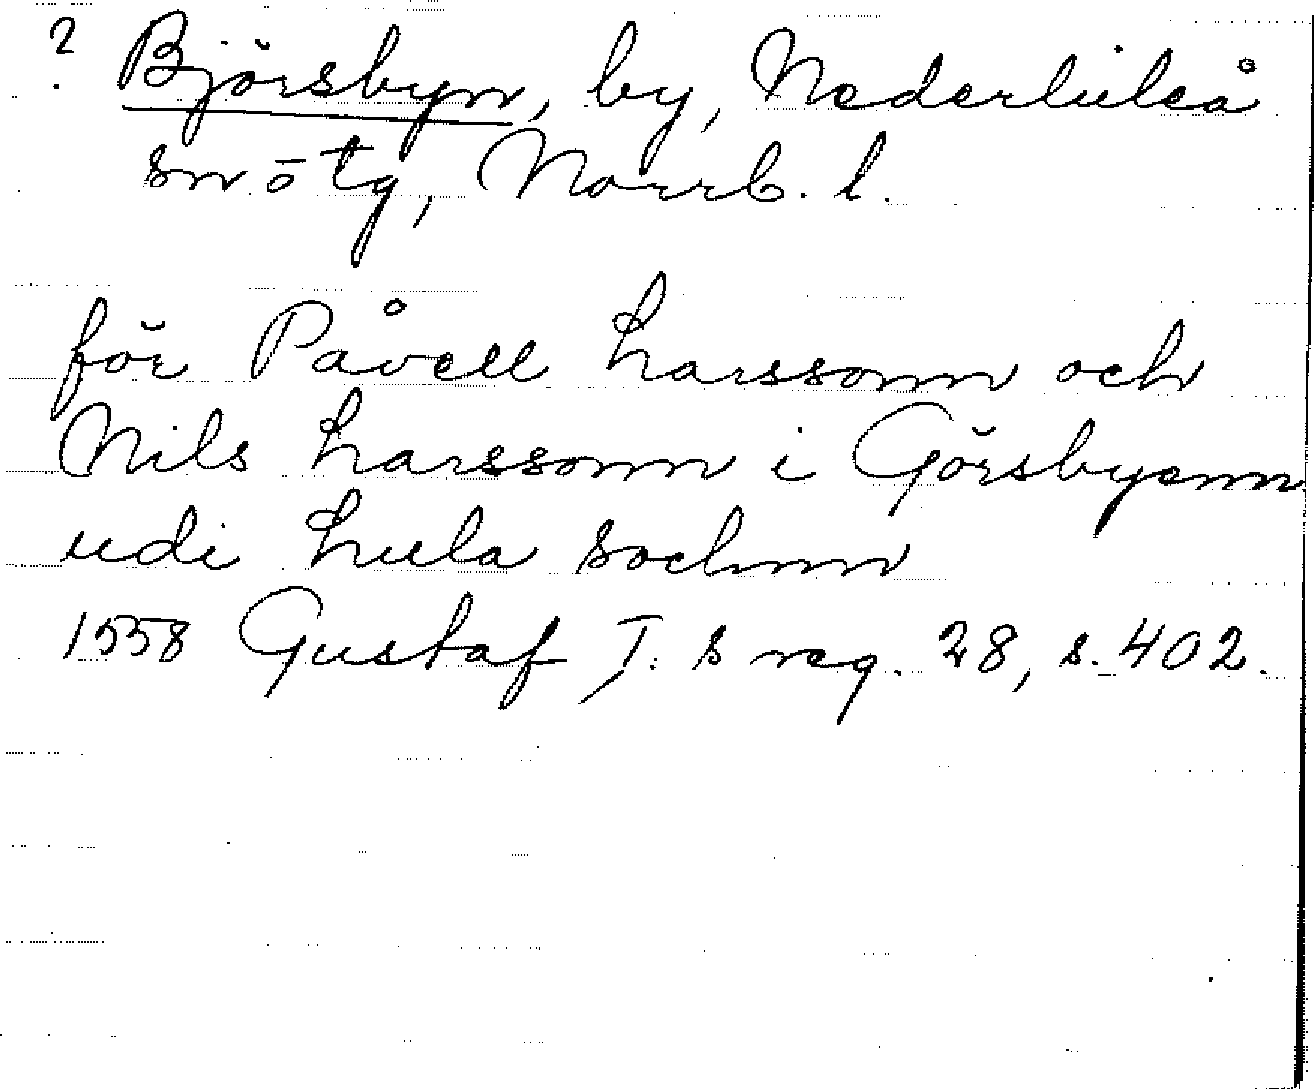 ? Björsbyn, by, Nederluleå
sn o tg, Norrb. l.
för Påvell Larssonn och
Nils Larssonn i Görsbyenn
udi Lula sochnn
1558 Gustaf I:s reg. 28, s. 402.